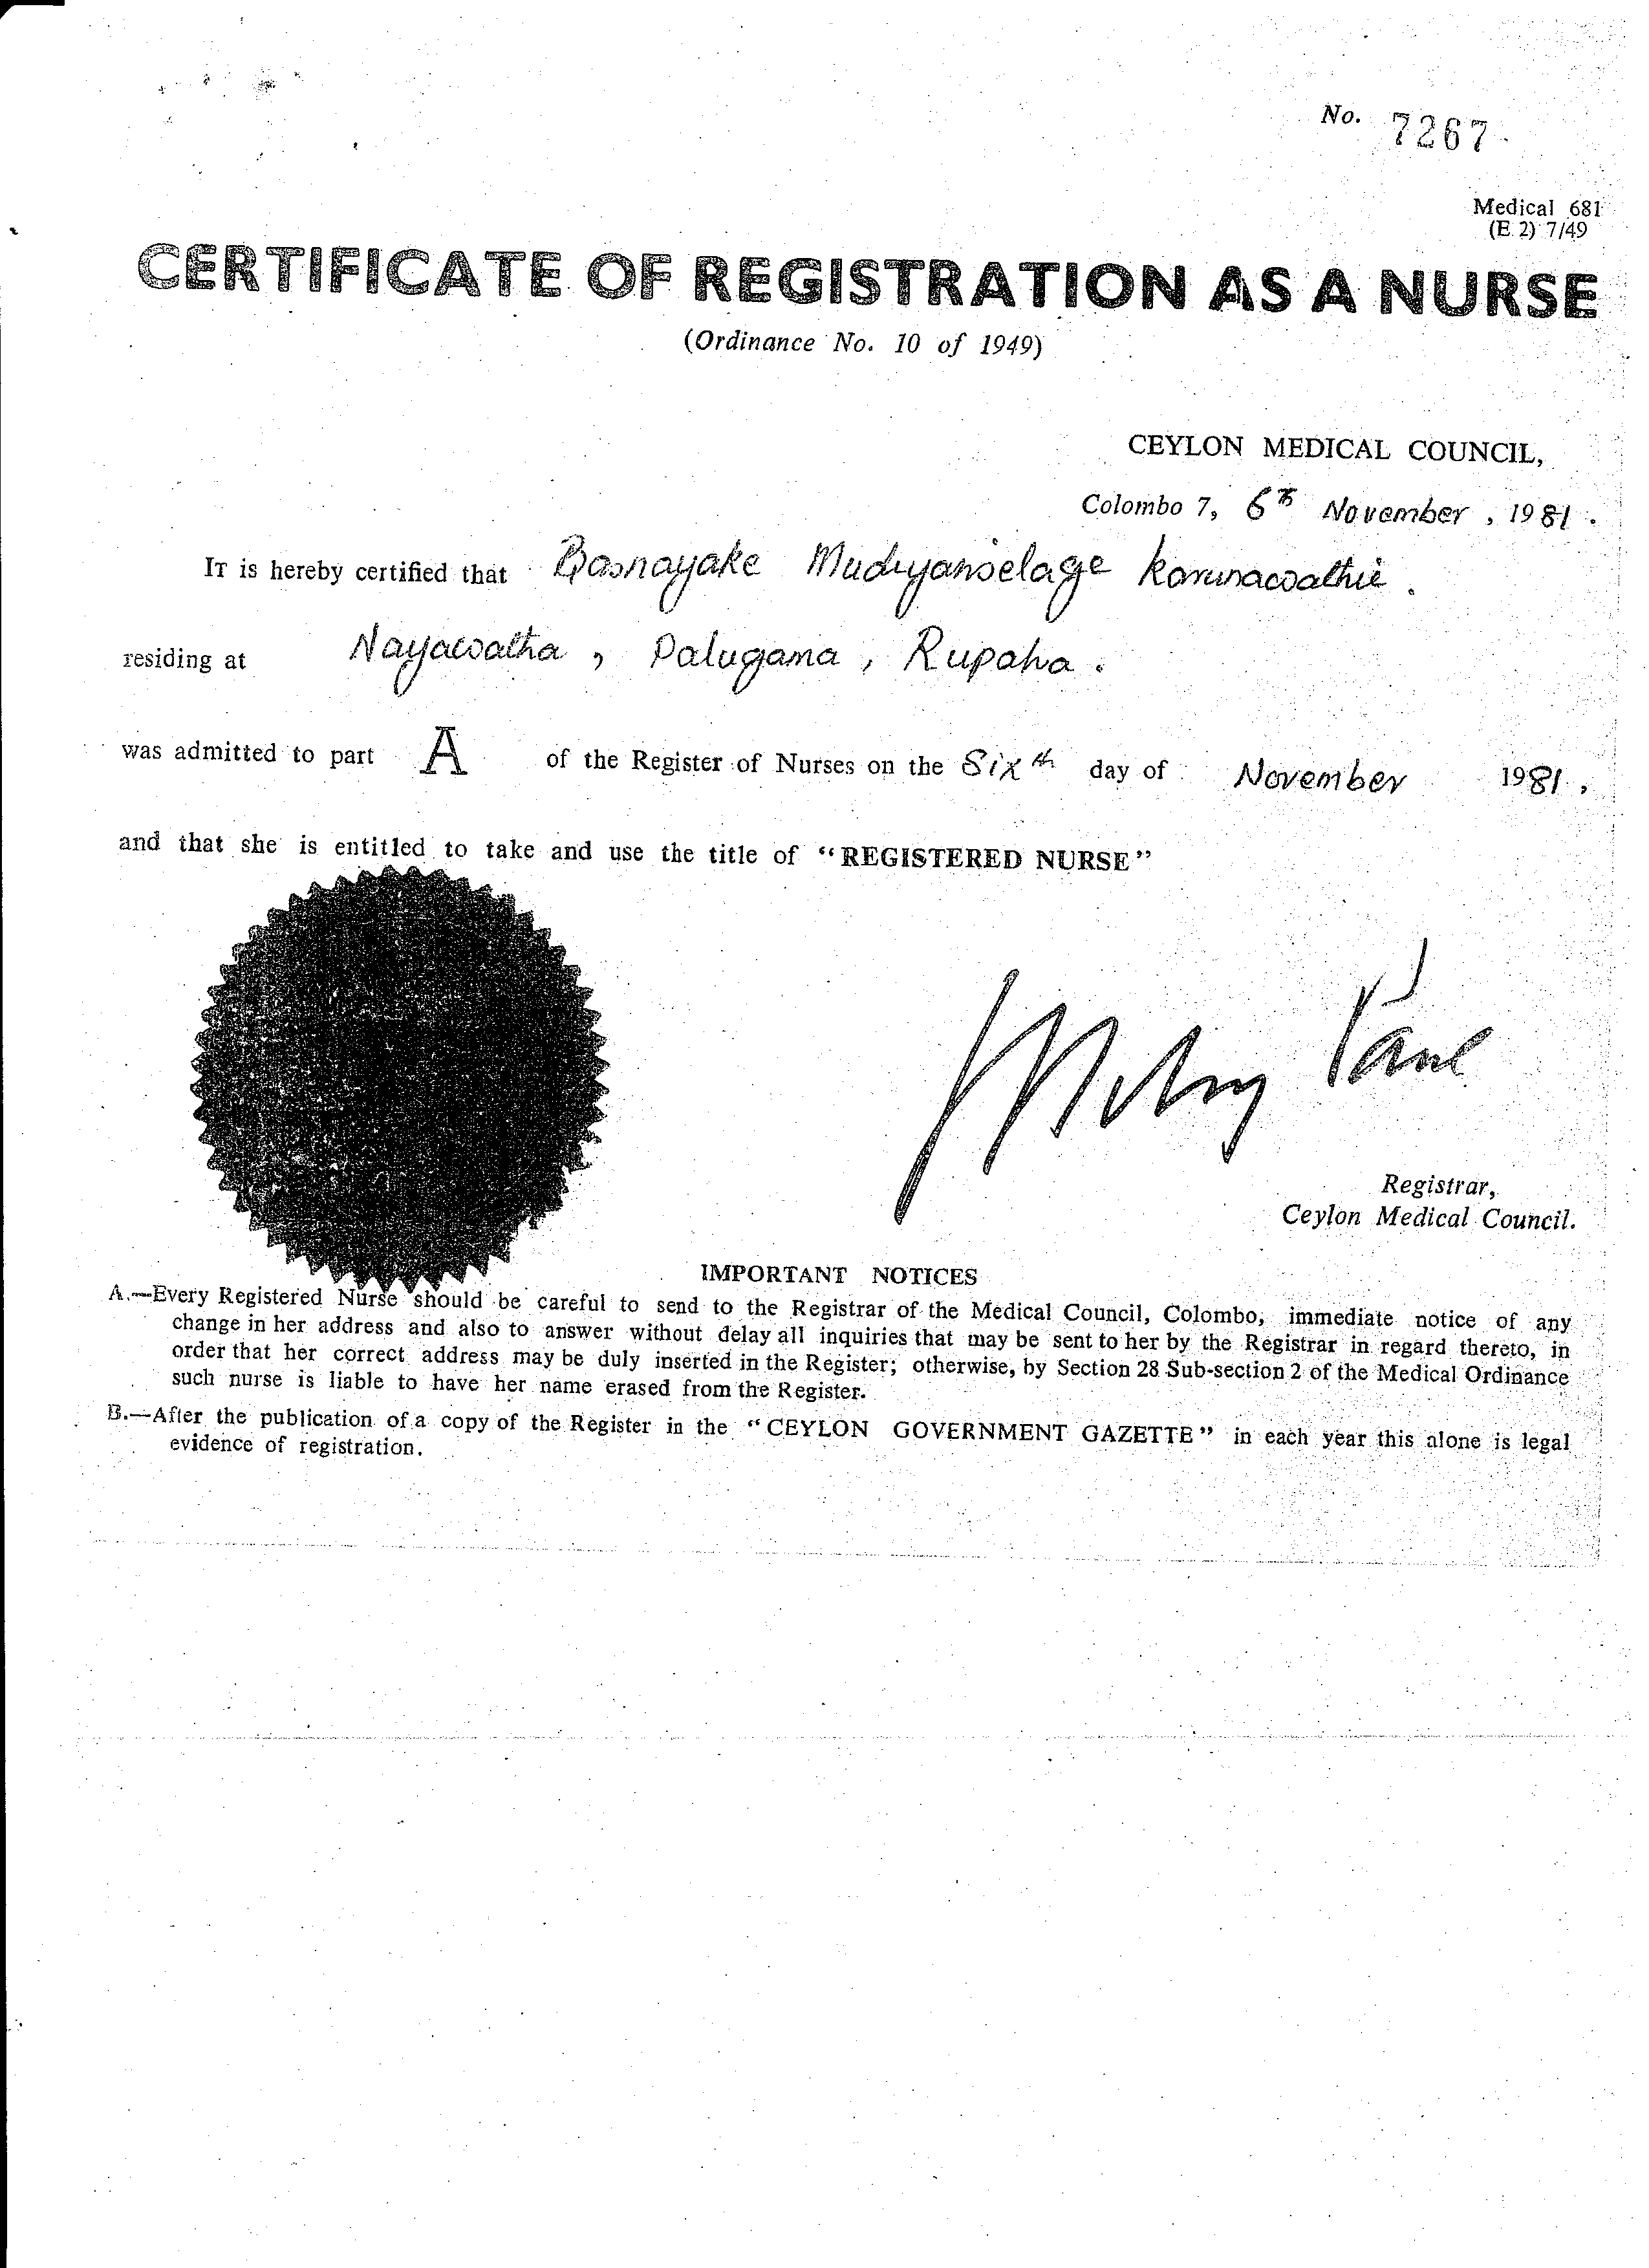 No. 7267
Medical 681
(E 2) 7/49
CERTIFICATE OF REGISTRATION AS A NURSE
(Ordinance No. 10 of 1949)
CEYLON MEDICAL COUNCIL,
Colombo 7, 6th November, 1981.
IT is hereby certified that Basnayake Mudiyanselage Karunawathie.
residing at Nayawatha, Palugama, Rupaha.
was admitted to part A of the Register of Nurses on the Sixth day of November 1981,
and that she is entitled to take and use the title of “REGISTERED NURSE”
Registrar,
Ceylon Medical Council.
IMPORTANT NOTICES
A.—Every Registered Nurse should be careful to send to the Registrar of the Medical Council, Colombo, immediate notice of any
change in her address and also to answer without delay all inquiries that may be sent to her by the Registrar in regard thereto, in
order that her correct address may be duly inserted in the Register; otherwise, by Section 28 Sub-section 2 of the Medical Ordinance
such nurse is liable to have her name erased from the Register.
B.—After the publication of a copy of the Register in the “CEYLON GOVERNMENT GAZETTE” in each year this alone is legal
evidence of registration.